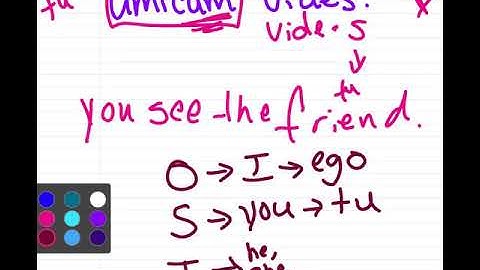 tu amicum vides. x
vide · s
tu
you see the friend.
O → I → ego
S → you → tu
T → he,
she